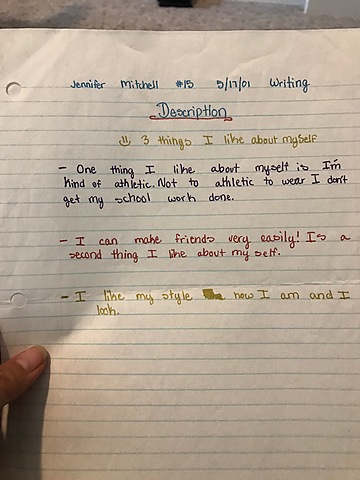 Jennifer Mitchell #15 5/17/01 Writing
Description
3 things I like about myself
- One thing I like about myself is I'm
kind of athletic. Not to athletic to wear I don't
get my school work done.
- I can make friends very easily! Is a
second thing I like about my self.
- I like my style how I am and I
look.